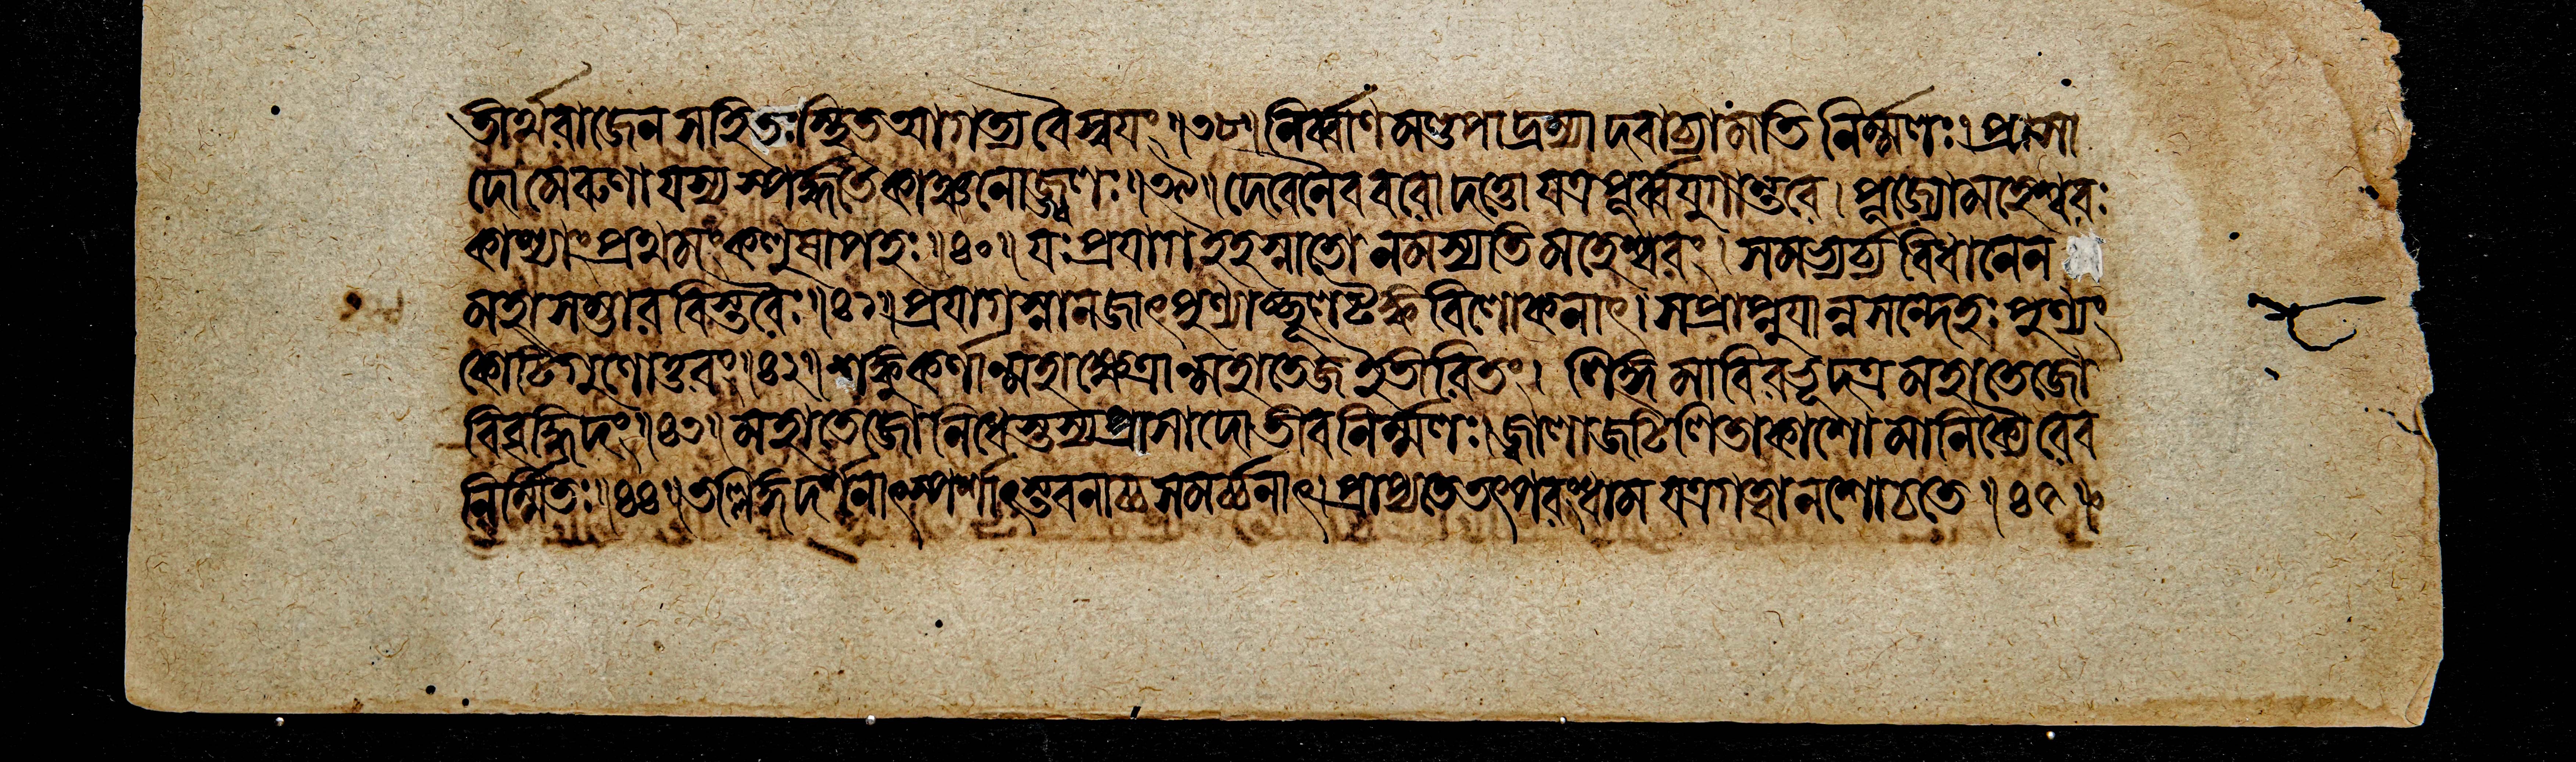 তীর্থরাজেন সহিতঃ স্থিত আগত্য বৈ স্বয়ং ॥৩৮॥ নির্ব্বাণমণ্ডপাদ্রম্যাদবাচ্যামতিনির্ম্মলঃ। প্রাসা
দো মেরুণা যস্য স্পর্দ্ধতে কাঞ্চনোজ্জ্বলঃ ॥৩৯॥ দেবেনৈব বরো দত্তো যত্র পূর্ব্বযুগান্তরে। পূজ্যো মহেশ্বরঃ
কাশ্যাং প্রথমং কলুষাপহঃ ॥৪০॥ যঃ প্রয়াগ ইহ স্নাতো নমস্যতি মহেশ্বরং। সমভ্যর্চ্য বিধানেন
মহাসম্ভারবিস্তরৈঃ ॥৪১॥ প্রয়াগস্নানজাৎ পুণ্যাচ্ছূলটঙ্কবিলোকনাৎ। স প্রাপ্নুয়ান্ন সন্দেহঃ পুণ্যং
কোটিগুণোত্তরং ॥৪২॥ শঙ্কুকর্ণান্মহাক্ষেত্রান্মহাতেজ ইতীরিতং। লিঙ্গমাবিরভূদত্র মহাতেজো
বিবৃদ্ধিদং ॥৪৩॥ মহাতেজোনিধেস্তস্য প্রাসাদোতীব নির্ম্মলঃ। জ্বালাজটিলিতাকাশো মানিক্যৈরেব
নির্ম্মিতঃ ॥৪৪॥ তল্লিঙ্গদর্শনাৎ স্পর্শাৎ স্তবনাচ্চ সমর্চ্চনাৎ। প্রাপ্যতে তৎপরং ধাম যত্র গত্বা ন শোচতে ॥৪৫॥